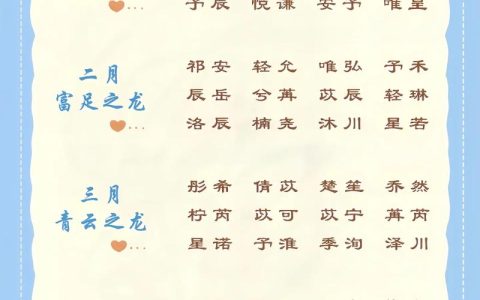 予辰 悦谦 安予 唯星
二月
富足之龙
祁安 轻允 唯弘 予禾
辰岳 兮苒 苡辰 轻琳
洛辰 楠尧 沐川 星若
三月
青云之龙
彤希 倩苡 楚笙 乔然
柠芮 苡可 苡宁 苒芮
星诺 予淮 季洵 泽川